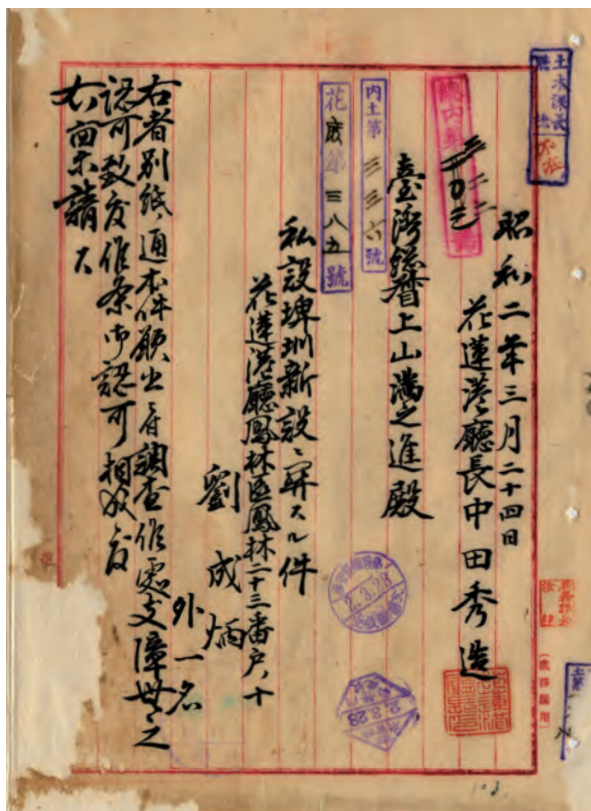 土木課長
不在
昭和二年三月二十四日
花蓮港廳長中田秀造
臺灣總督上山滿之進殿
內土第三三六號
花庶第三八五號
私設埤圳新設ニ關スル件
花蓮港廳鳳林區鳳林二十三番戶ノ十
劉成炳
外一名
右者別紙ノ通本件願出ニ付調查候處支障無之
認可致度候條御認可相成度
右稟請ス
2.3.28
2.3.28